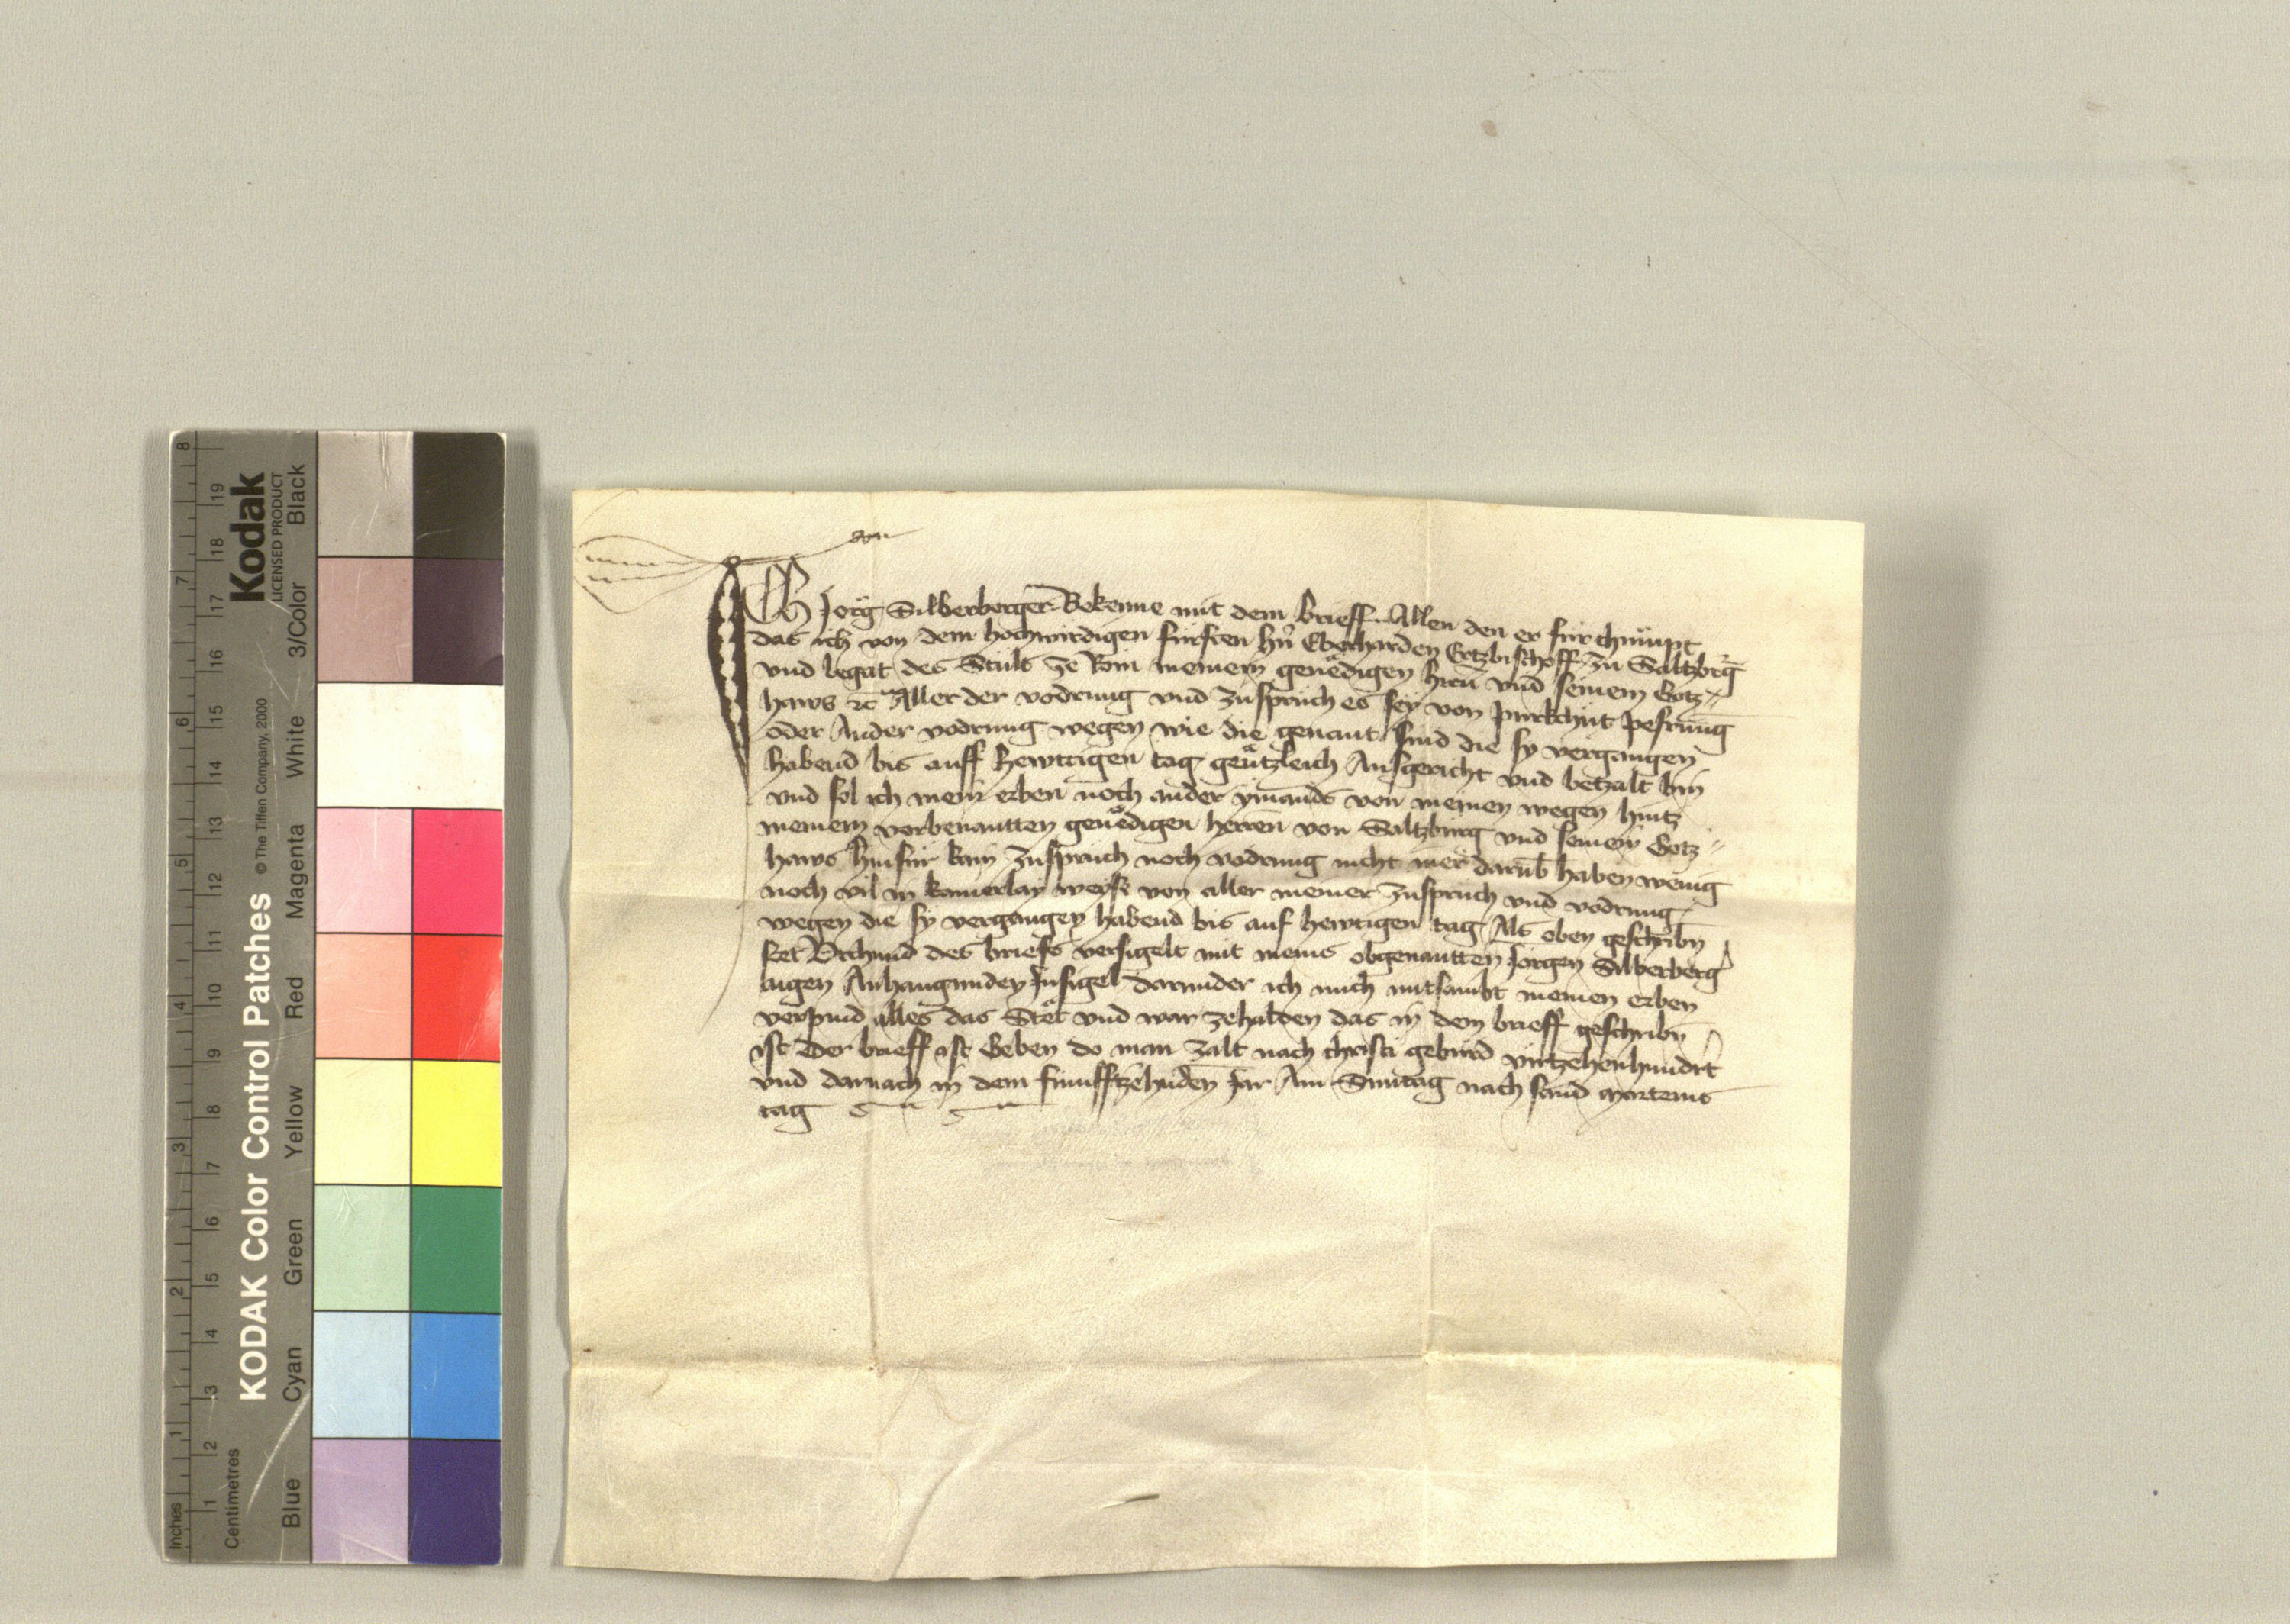 ICH Jörg Silberberger Bekenne mit dem brieff Allen den er fürchumpt
das ich von dem hochwirdigen fürsten hn̄ Eberharden Ertzbischoff zu Saltzbrg
vnd legat des Stuls ze Rom meinem genëdigen hren̄ vnd seinem Gotz
haws ꝛc Aller der vodrung vnd zuspruch es sey von purkchut pesrung
oder Ander vodrung wegen wie die genant sind die sy vergangen
habend bis auff hewttigen tag gëntzleich Ausgericht vnd betzalt bin
vnd sol ich mein erben noch ander ymands von meinen wegen hintz
meinem vorbenantten genëdigen herren von Saltzburg vnd seinem Gotz
haws hinfür kain zuspruch noch vodrung nicht mer darub̄ haben wenig
noch vil in kainerlay weyse von aller meiner zuspruch vnd vodrung
wegen die sy vergangen habend bis auf hewtigen tag Als oben geschribn̄
stet Vrchund des briefs versigelt mit meins obgenantten Jorgen Silberberg
aigen Anhangunden Insigel darunder ich mich mitsambt meinen erben
verpind alles das Stët vnd war zehalden das in dem brieff geschribn̄
ist Der brieff ist Geben do man zalt nach christi geburd virtzehenhundrt
vnd darnach in dem funfftzehnden Jar Am Suntag nach sand marteins
tag
KODAK Color Control Patches © The Tiffen Company, 2000
Kodak
LICENSED PRODUCT
Inches 1 2 3 4 5 6 7 8
Centimetres 1 2 3 4 5 6 7 8 9 10 11 12 13 14 15 16 17 18 19
Blue Cyan Green Yellow Red Magenta White 3/Color Black